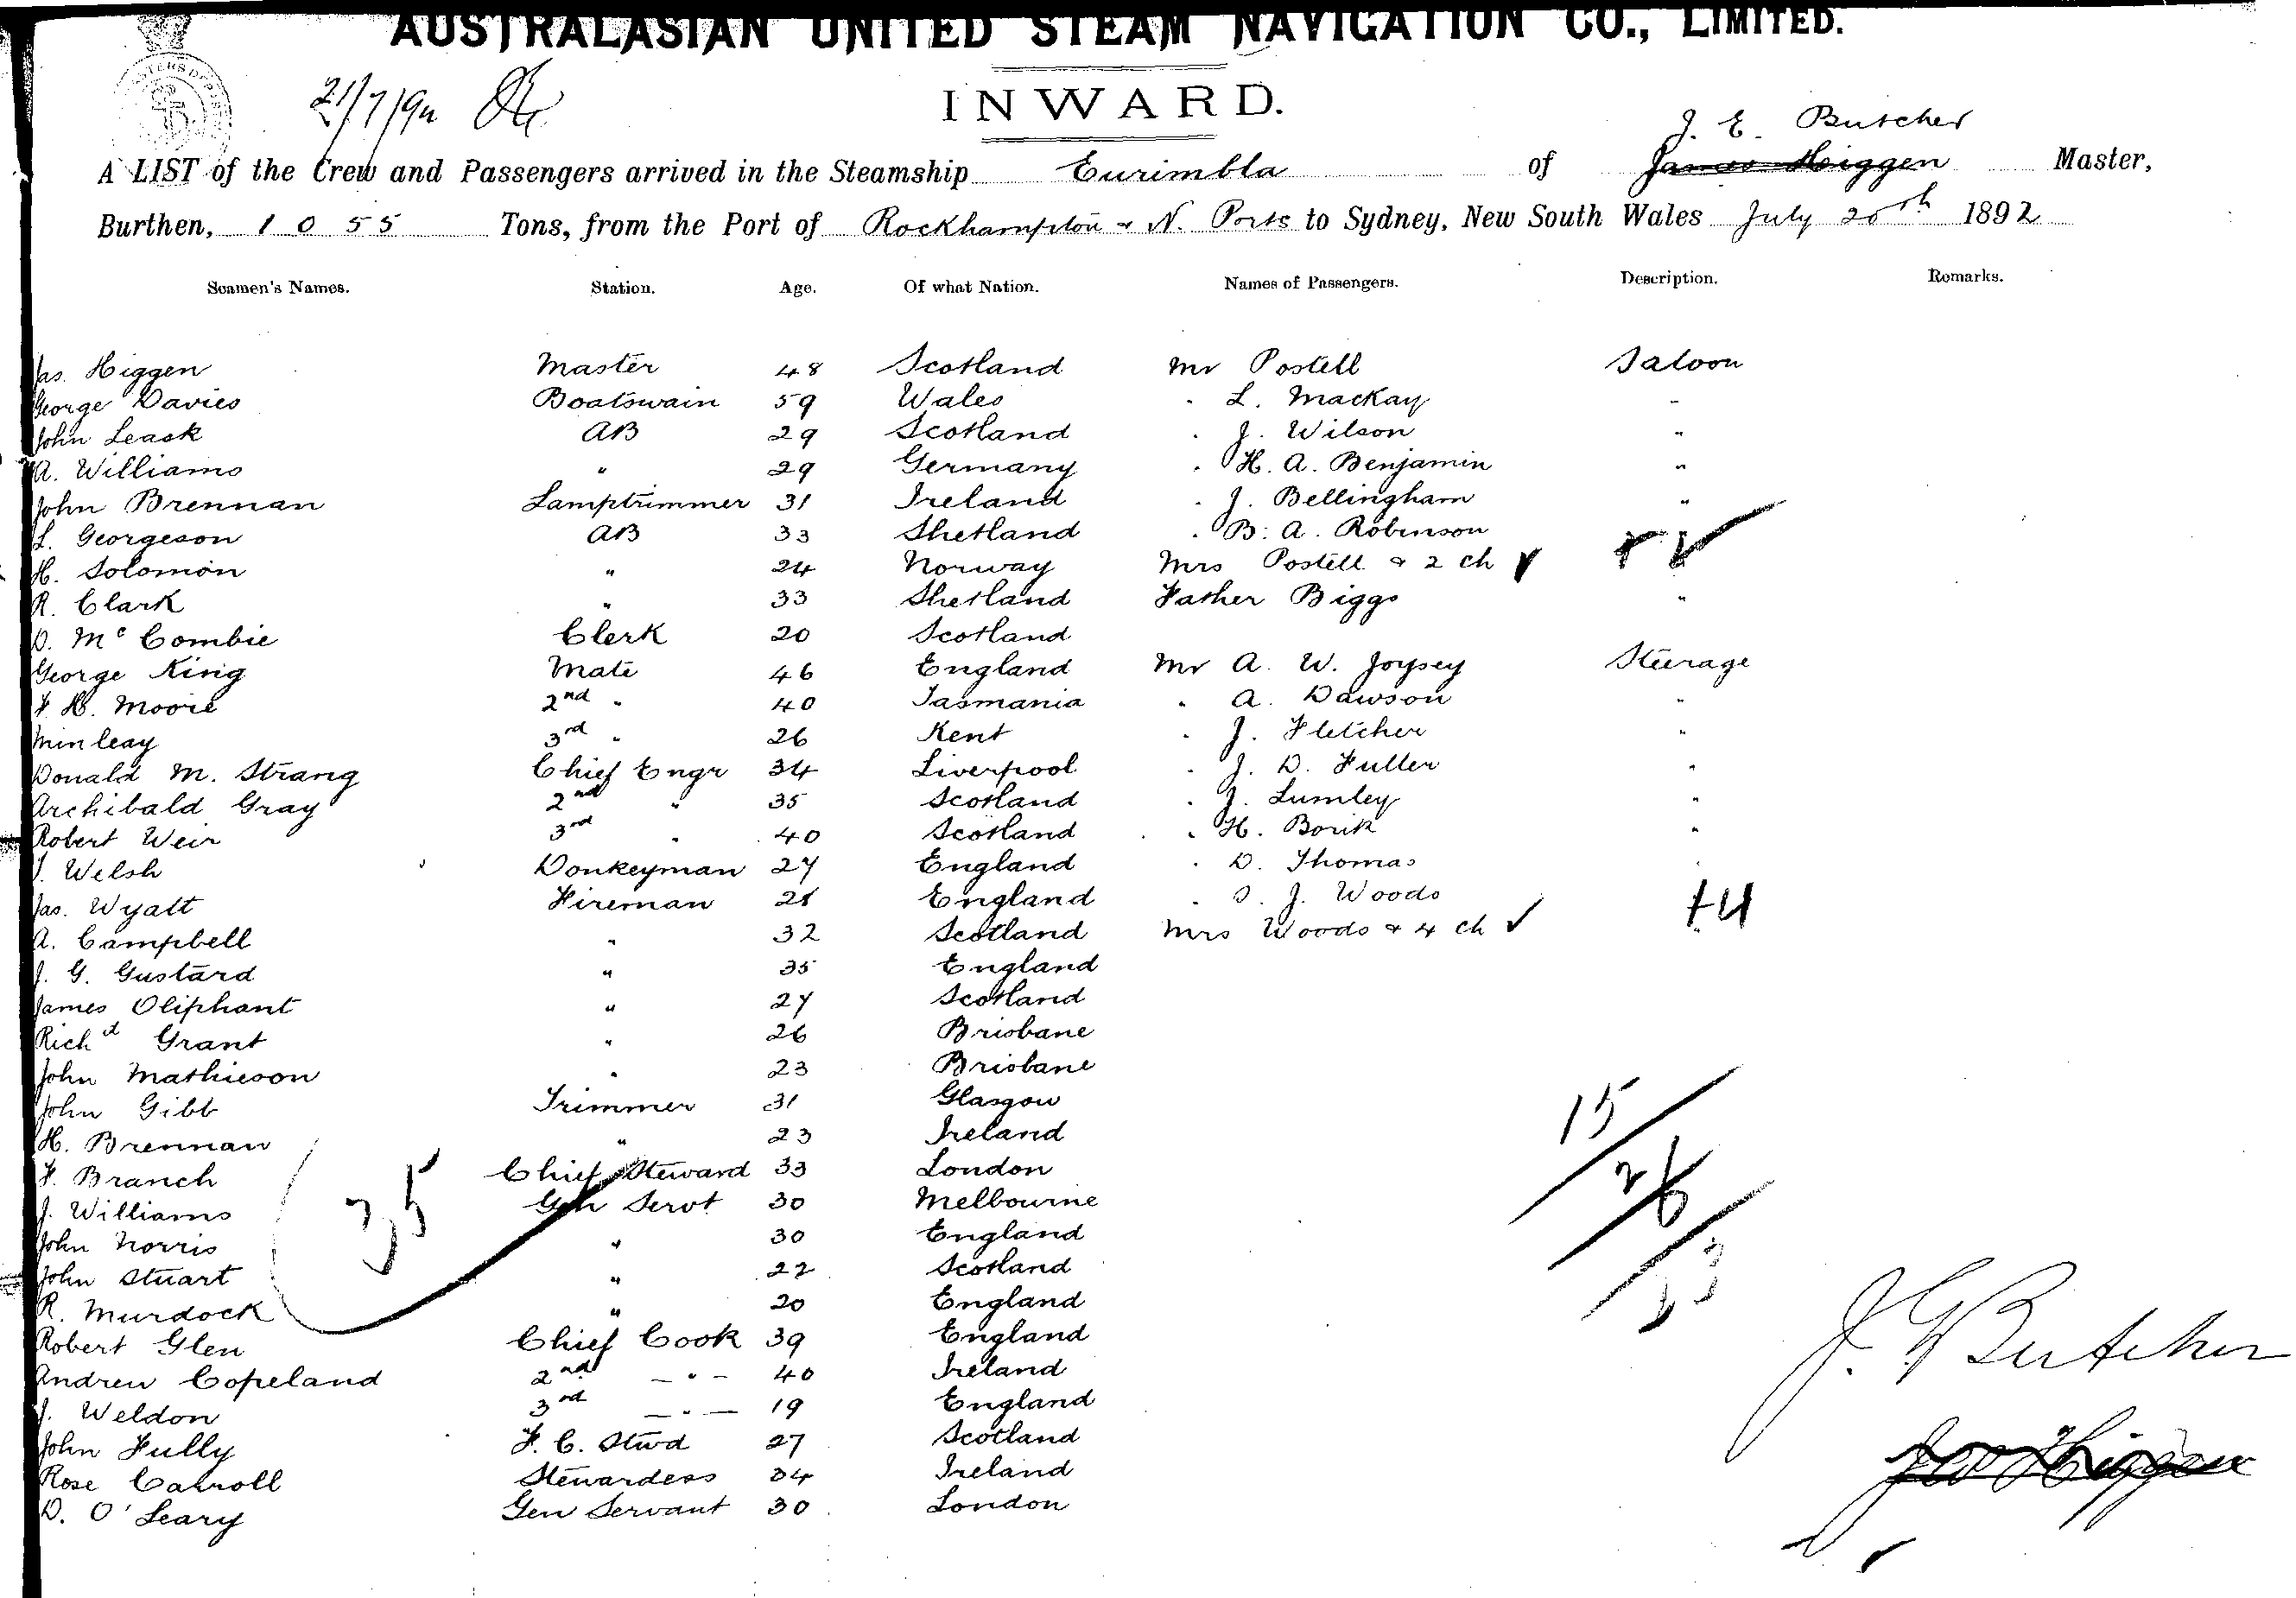 AUSTRALASIAN UNITED STEAM NAVIGATION CO., LIMITED.
21/7/92
INWARD.
J. E. Butcher
A LIST of the Crew and Passengers arrived in the Steamship Eurimbla of James Higgen Master,
Burthen, 1055 Tons, from the Port of Rockhampton & N. Ports to Sydney, New South Wales July 20th 1892
Seamen's Names. Station. Age. Of what Nation. Names of Passengers. Description. Remarks.
Jas. Higgen Master 48 Scotland Mr Postell Saloon
George Davies Boatswain 59 Wales " L. Mackay "
John Leask AB 29 Scotland " J. Wilson "
A. Williams " 29 Germany " H. A. Benjamin "
John Brennan Lamptrimmer 31 Ireland " J. Bellingham "
L. Georgeson AB 33 Shetland " B. A. Robinson
H. Solomon " 24 Norway Mrs Postell & 2 ch
R. Clark " 33 Shetland Father Biggs "
D. McCombie Clerk 20 Scotland
George King Mate 46 England Mr A. W. Joysey Steerage
F. H. Moore 2nd " 40 Tasmania " A. Dawson "
Minleay 3rd " 26 Kent " J. Fletcher "
Donald M. Strang Chief Engr 34 Liverpool " J. D. Fuller "
Archibald Gray 2nd " 35 Scotland " J. Lumley "
Robert Weir 3rd " 40 Scotland " H. Borik "
J. Welsh Donkeyman 27 England " D. Thomas "
Jas. Wyatt Fireman 28 England " J. Woods
A. Campbell " 32 Scotland Mrs Woods & 4 ch +4
J. G. Gustard " 35 England
James Oliphant " 27 Scotland
Richd Grant " 26 Brisbane
John Mathieson " 23 Brisbane
John Gibb Trimmer 31 Glasgow
H. Brennan " 23 Ireland
F. Branch Chief Steward 33 London
J. Williams Gen Servt 30 Melbourne
John Norris " 30 England
John Stuart " 22 Scotland
R. Murdock " 20 England
Robert Glen Chief Cook 39 England
Andrew Copeland 2nd " 40 Ireland
J. Weldon 3rd " 19 England
John Fully F. C. Stwd 27 Scotland
Rose Carroll Stewardess 34 Ireland
D. O'Leary Gen Servant 30 London
35
15
26
J. E. Butcher
Jas Higgen